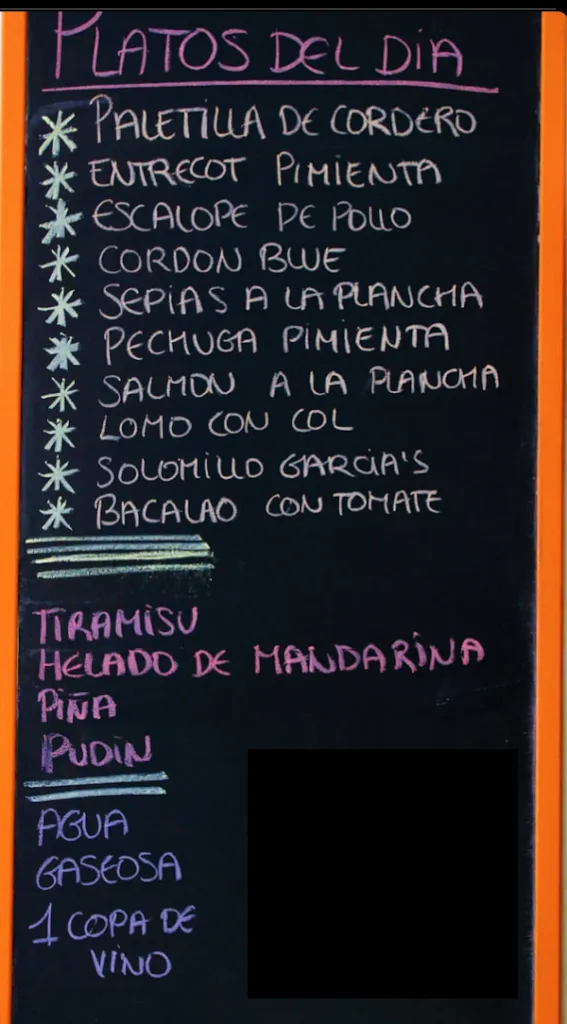 PLATOS DEL DIA
* PALETILLA DE CORDERO
* ENTRECOT PIMIENTA
* ESCALOPE DE POLLO
* CORDON BLUE
* SEPIAS A LA PLANCHA
* PECHUGA PIMIENTA
* SALMON A LA PLANCHA
* LOMO CON COL
* SOLOMILLO GARCIA'S
* BACALAO CON TOMATE
TIRAMISU
HELADO DE MANDARINA
PIÑA
PUDIN
AGUA
GASEOSA
1 COPA DE
VINO